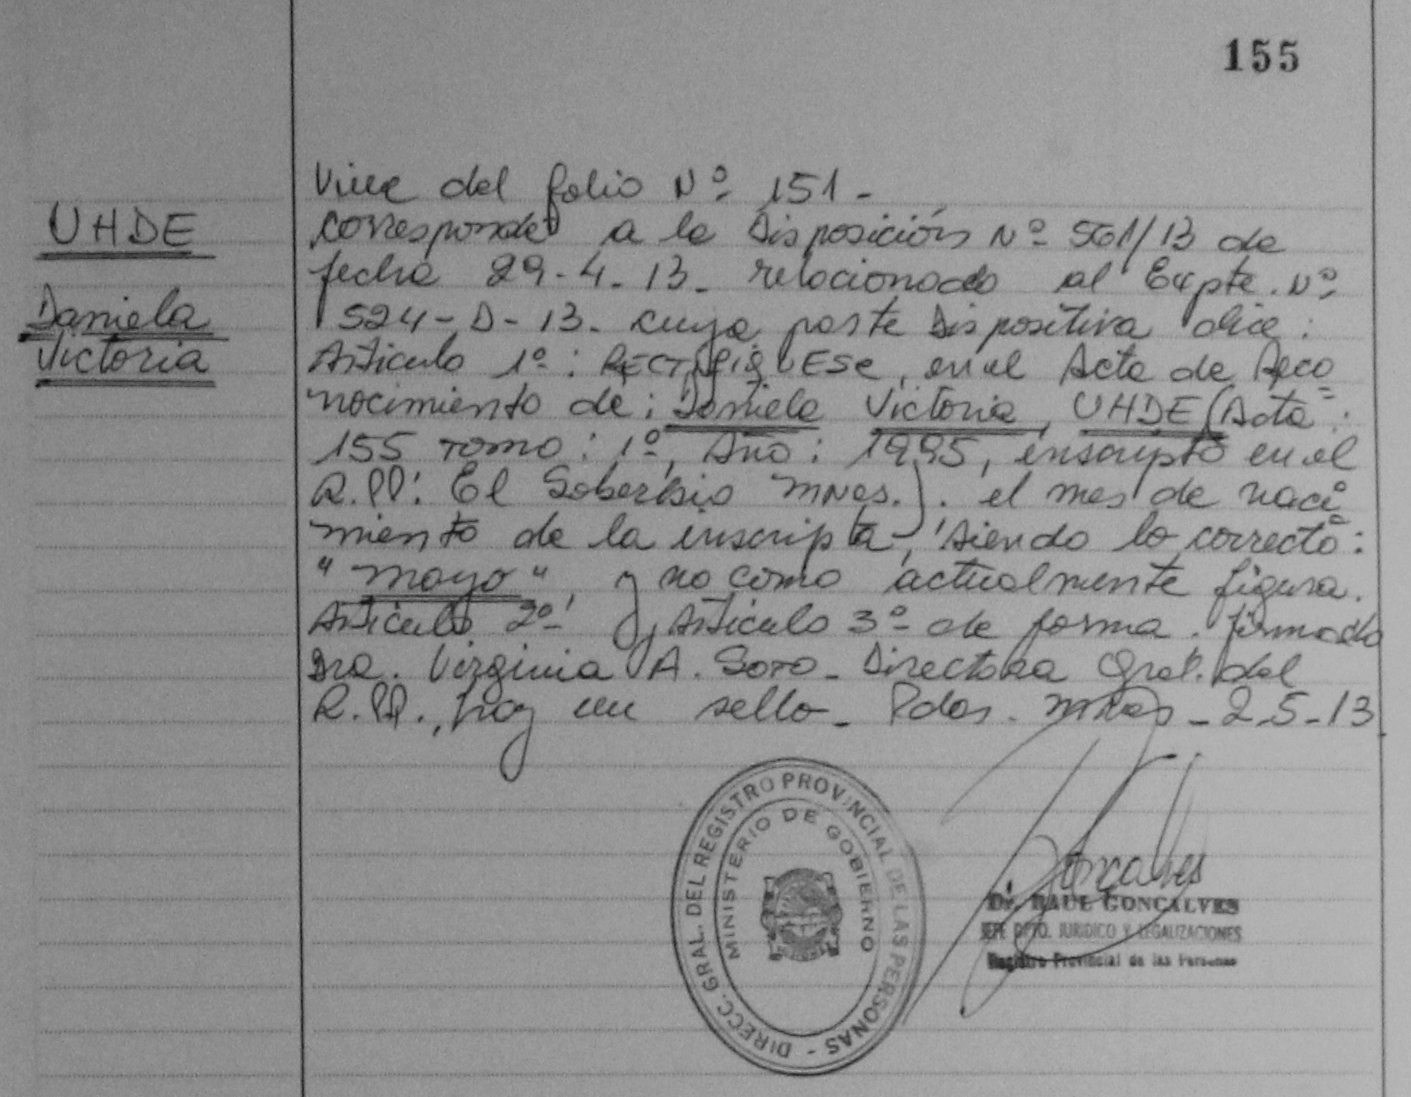 155
UHDE
Daniela
Victoria
Viene del folio Nº 151 -
corresponde a la Disposición Nº 561/13 de
fecha 29-4-13- relacionado al Expte. Nº
1524-D-13- cuya parte Dispositiva dice:
Articulo 1º: RECTIFIQUESE, en el Acta de Reco
nocimiento de: Daniela Victoria, UHDE (Acta:
155 Tomo: 1º, Año: 1995, inscripto en el
R.PP: El Soberbio MNES.). el mes de naci
miento de la inscripta, siendo lo correcto:
"mayo", y no como actualmente figura.
Articulo 2º y Articulo 3º de forma. firmado
Dra. Virginia A. Soto - Directora Gral. del
R.PP., hay un sello - Pdas. Mnes - 2-5-13
DIRECC. GRAL. DEL REGISTRO PROVINCIAL DE LAS PERSONAS -
MINISTERIO DE GOBIERNO
Goncalves
Dr. RAUL GONCALVES
JEFE DPTO. JURIDICO Y LEGALIZACIONES
Registro Provincial de las Personas